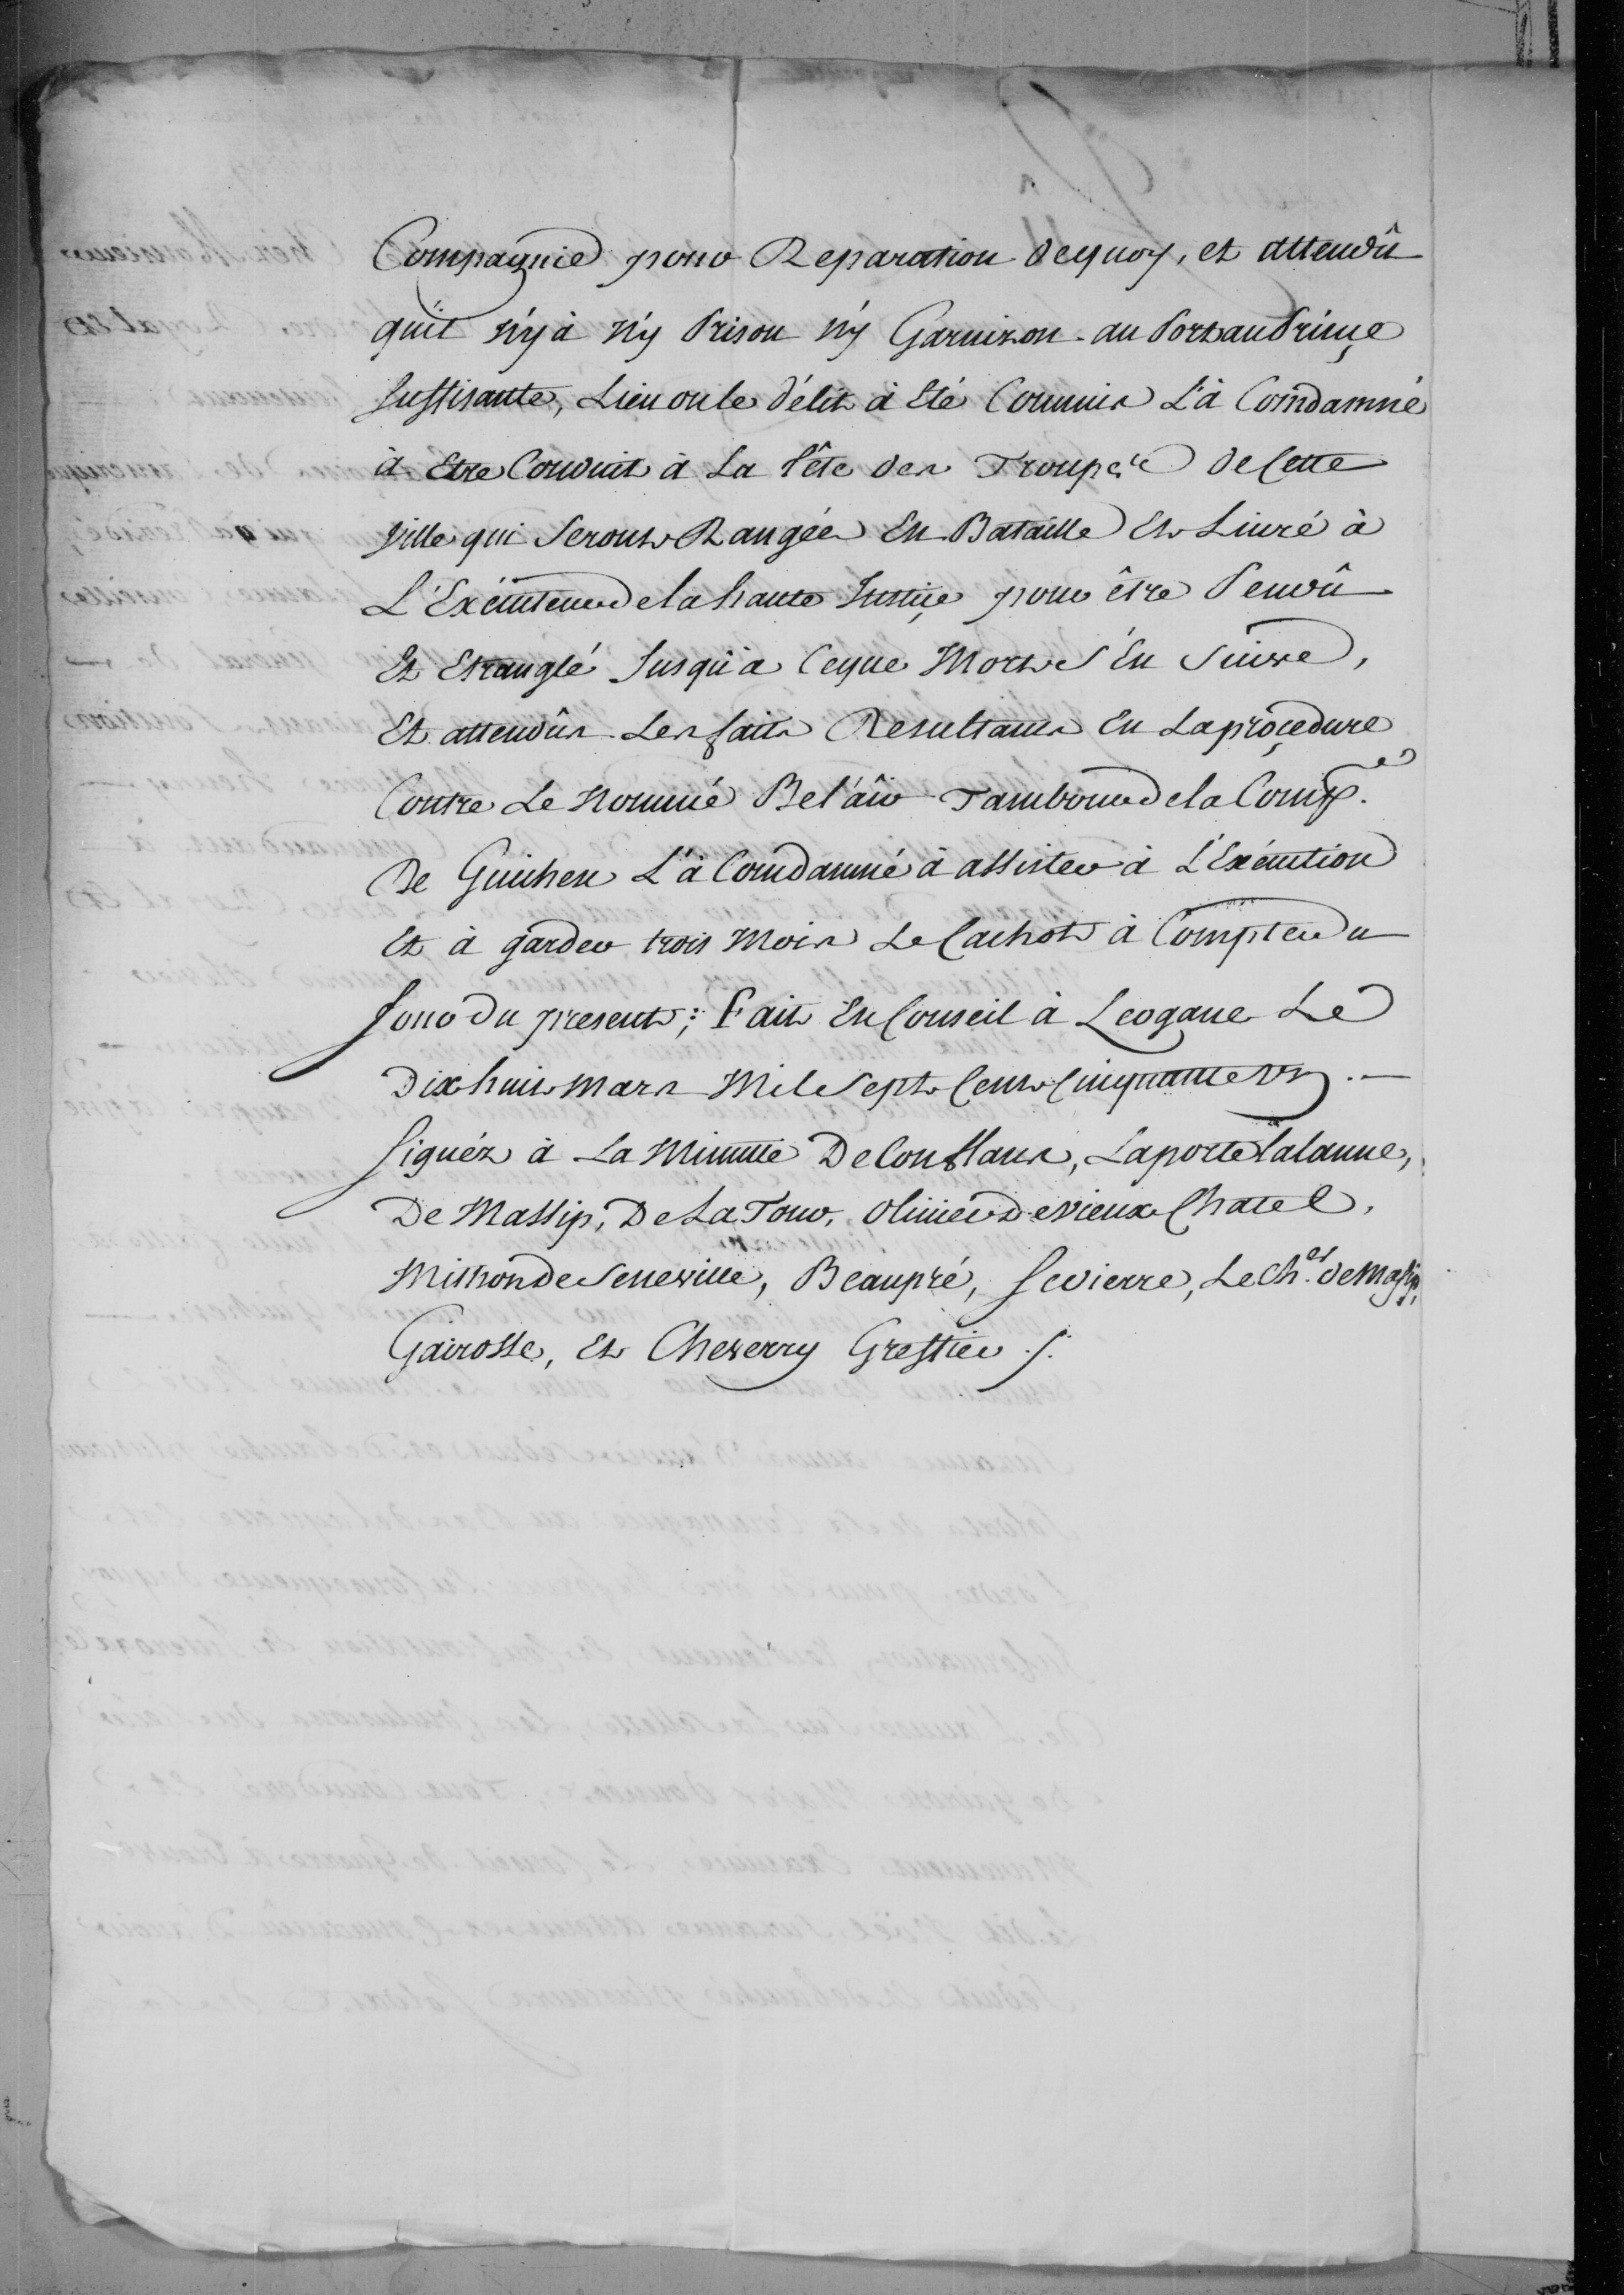 Compagnie pour Reparation dequoy, et attendû
quil n'y à n'y Prison n'y Garnizon au Portau Prinçe
suffisante, Lieu oule délit à Eté Commis L'à Comdamné
à Etre Conduit à La tête des Troupes de Cette
Ville qui Seront Rangées En Bataille Et Livré à
L'Exécuteur dela haute Justiçe pour être Pendû
Et Etranglé Jusqu'a Ceque Mort S'En Suive,
Et attendûs Les faits Resultants En Laproçedure
Contre Le Nommé Bel'air Tambour dela Comp.e
De Guichen L'à Comdamné à assister à L'Exécution
Et à garder trois Mois Le Cachot à Compter du
Jour du present; Fait En Conseil à Leogane Le
Dix huit Mars Mil Sept Cent Cinquante Un .—
Signéz à La Minutte De Conflans, Laporte Lalanne,
De Massip, De La Tour, Olivier De vieux Chatel,
Mithon de Seneville, Beaupré, Sevierre, Le Ch.er de Massip,
Gairosse, Et Cheverry Greffier ./.